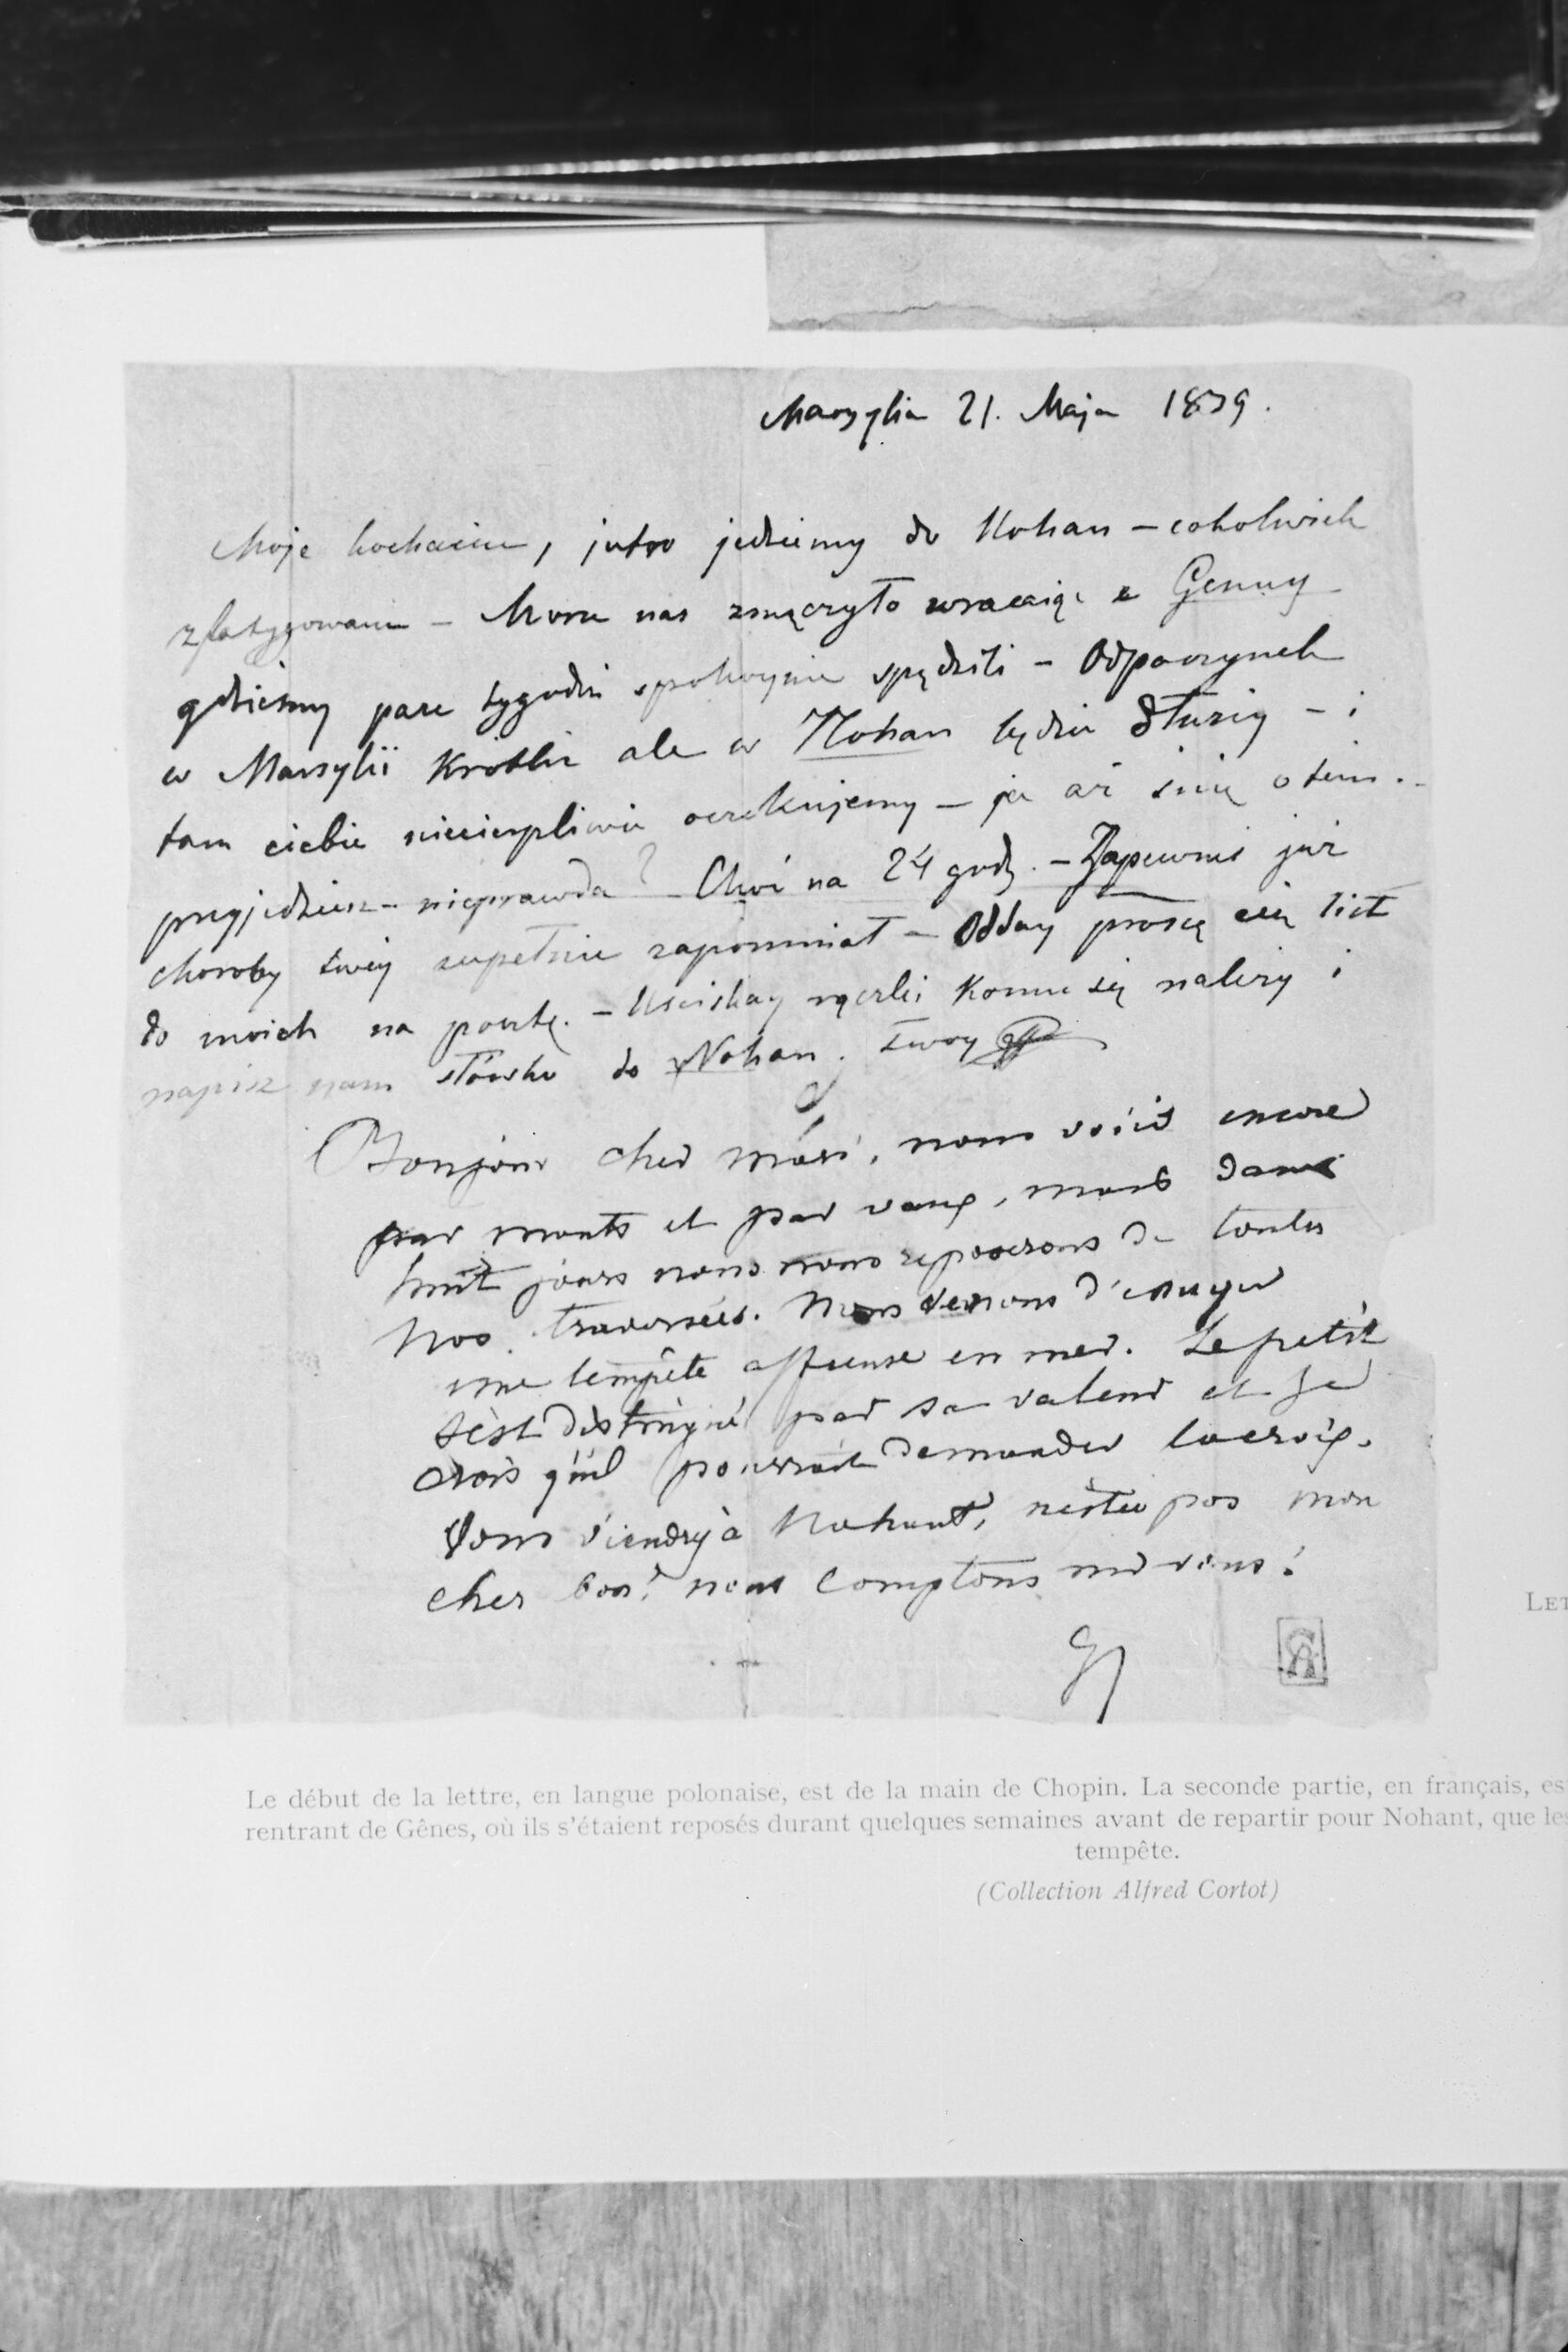 Marsylia 21. Maja 1839.
Moje kochanie, jutro jedziemy do Nohan – cokolwiek
zfatygowani – Morze nas zmęczyło wracaiąc z Genuy
gdzieśmy pare tygodni spokoynie spędzili – Odpoczynek
w Marsylii krótki ale w Nohan będzie dłuższy – i
tam ciebie niecierpliwie oczekujemy – ja aż śnię o tem. –
przyjedziesz – nieprawda? Choć na 24 godz. – Zapewnieś już
choroby twéy zupełnie zapomniał – Odday proszę cię list
do moich na pocztę. – Usciskay rączki komu się należy i
napisz nam słówko do Nohan. Twoy
Bonjour cher mari, nous voici encore
par monts et par vaux, mais dans
huit jours nous nous reposerons de toutes
nos traversées. Nous venons d'essuyer
une tempête affreuse en mer. Le petit
s'est distingué par sa valeur et je
crois qu'il pourrait demander la croix.
Vous viendrez à Nohant, n'est-ce pas mon
cher boy? nous comptons sur vous!
G
LET
Le début de la lettre, en langue polonaise, est de la main de Chopin. La seconde partie, en français, es
rentrant de Gênes, où ils s'étaient reposés durant quelques semaines avant de repartir pour Nohant, que les
tempête.
(Collection Alfred Cortot)